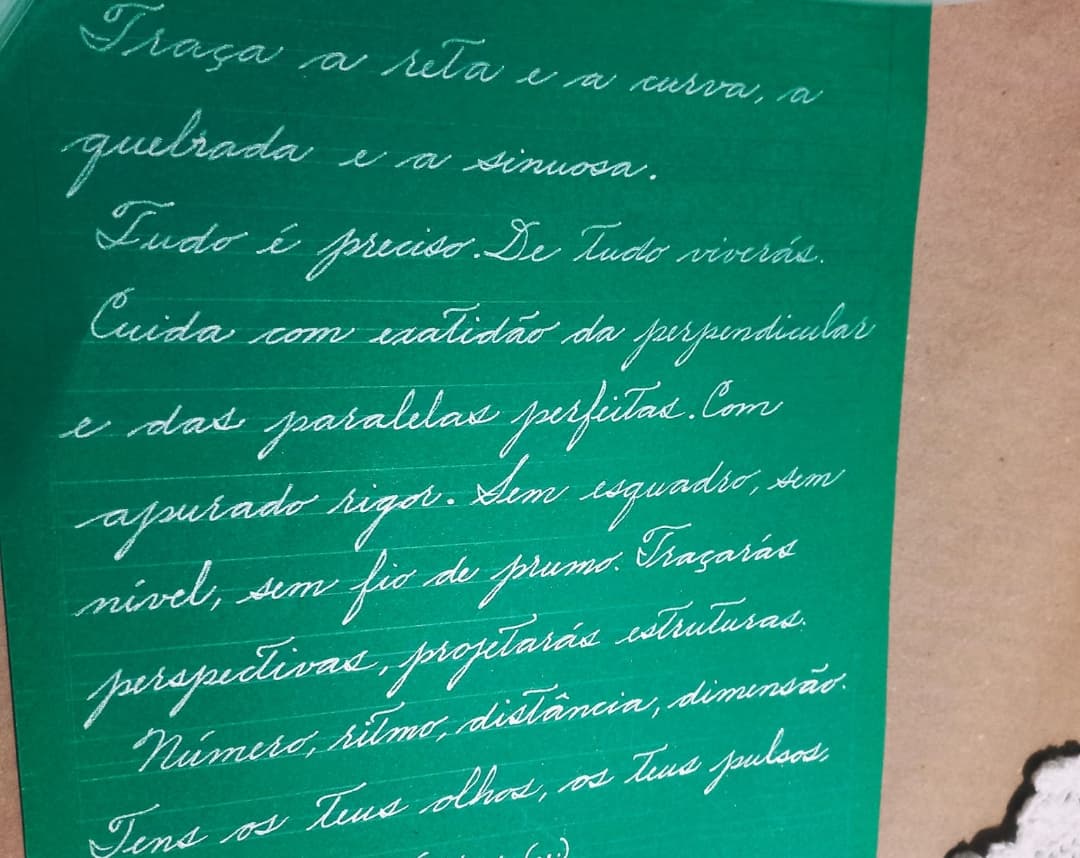 Traça a reta e a curva, a
quebrada e a sinuosa.
Tudo é preciso. De tudo viverás.
Cuida com exatidão da perpendicular
e das paralelas perfeitas. Com
apurado rigor. Sem esquadro, sem
nível, sem fio de prumo. Traçarás
perspectivas, projetarás estruturas.
Número, ritmo, distância, dimensão.
Tens os teus olhos, os teus pulsos,